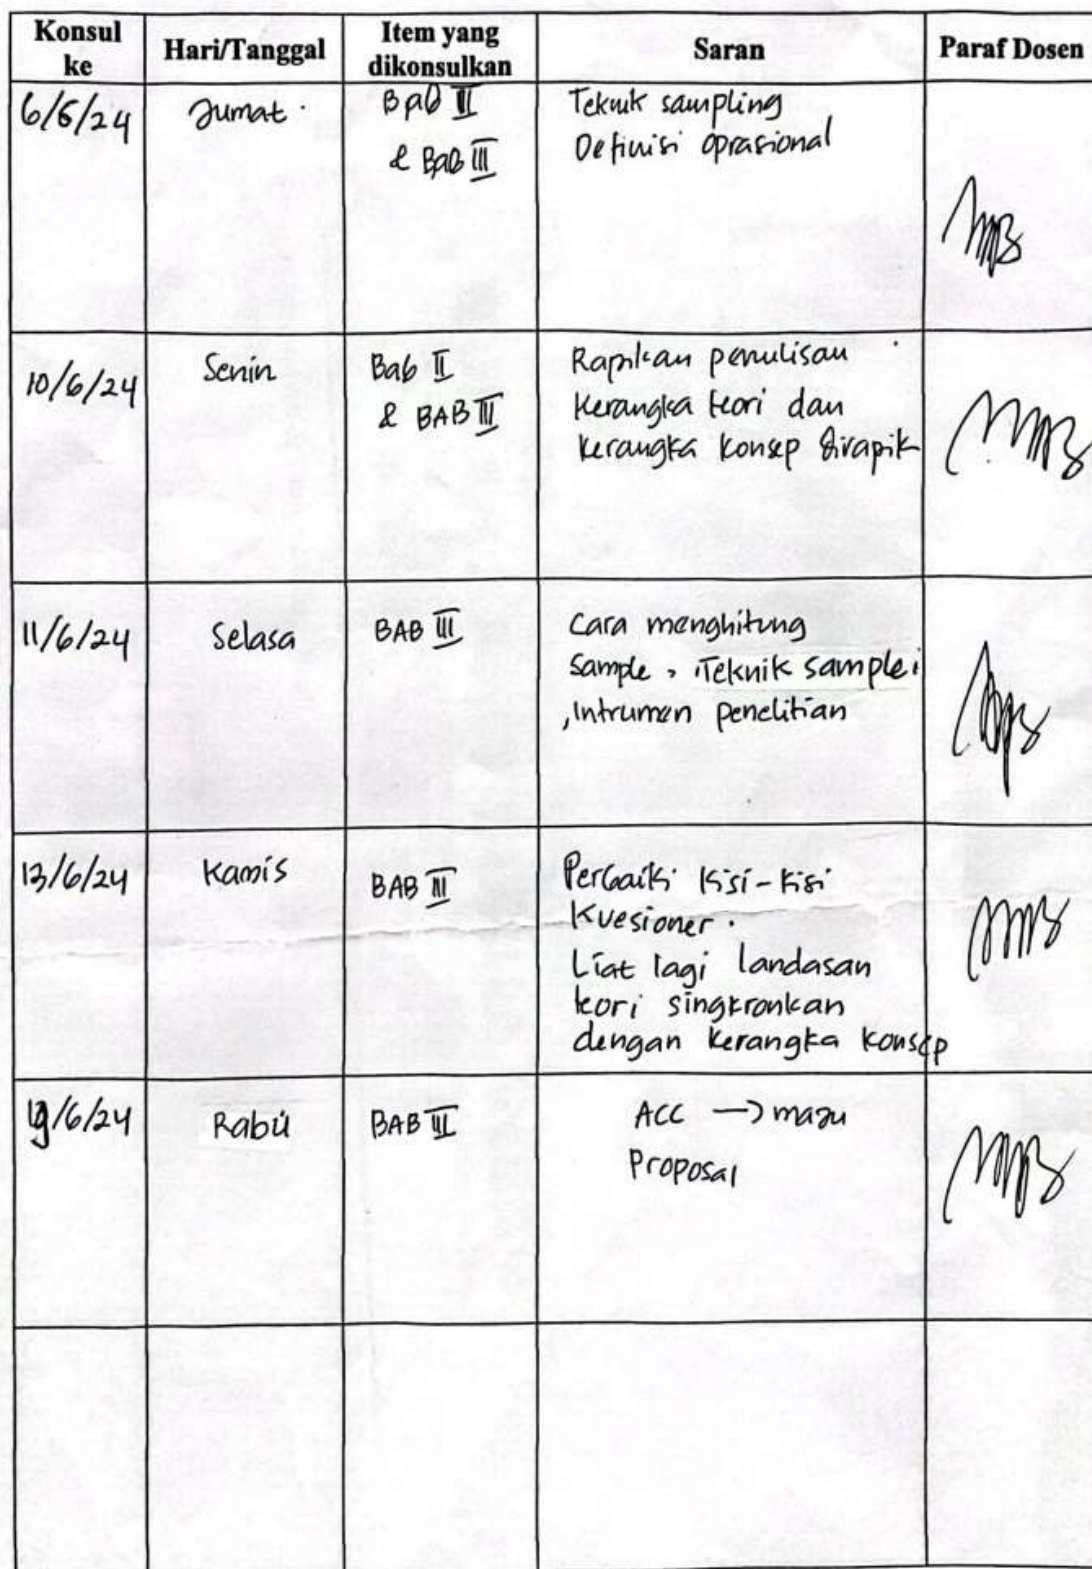 Konsul ke
Hari/Tanggal
Item yang dikonsulkan
Saran
Paraf Dosen
6/6/24
Jumat.
Bab II
& Bab III
Teknik sampling
Definisi oprasional
10/6/24
Senin
Bab II
& BAB III
Rapikan penulisan
Kerangka teori dan
kerangka konsep dirapik
11/6/24
Selasa
BAB III
Cara menghitung
Sample, Teknik sample
, Intrumen penelitian
13/6/24
Kamis
BAB III
Perbaiki Kisi-kisi
Kuesioner.
Liat lagi landasan
teori singkronkan
dengan kerangka konsep
19/6/24
Rabu
BAB III
ACC → maju
Proposal